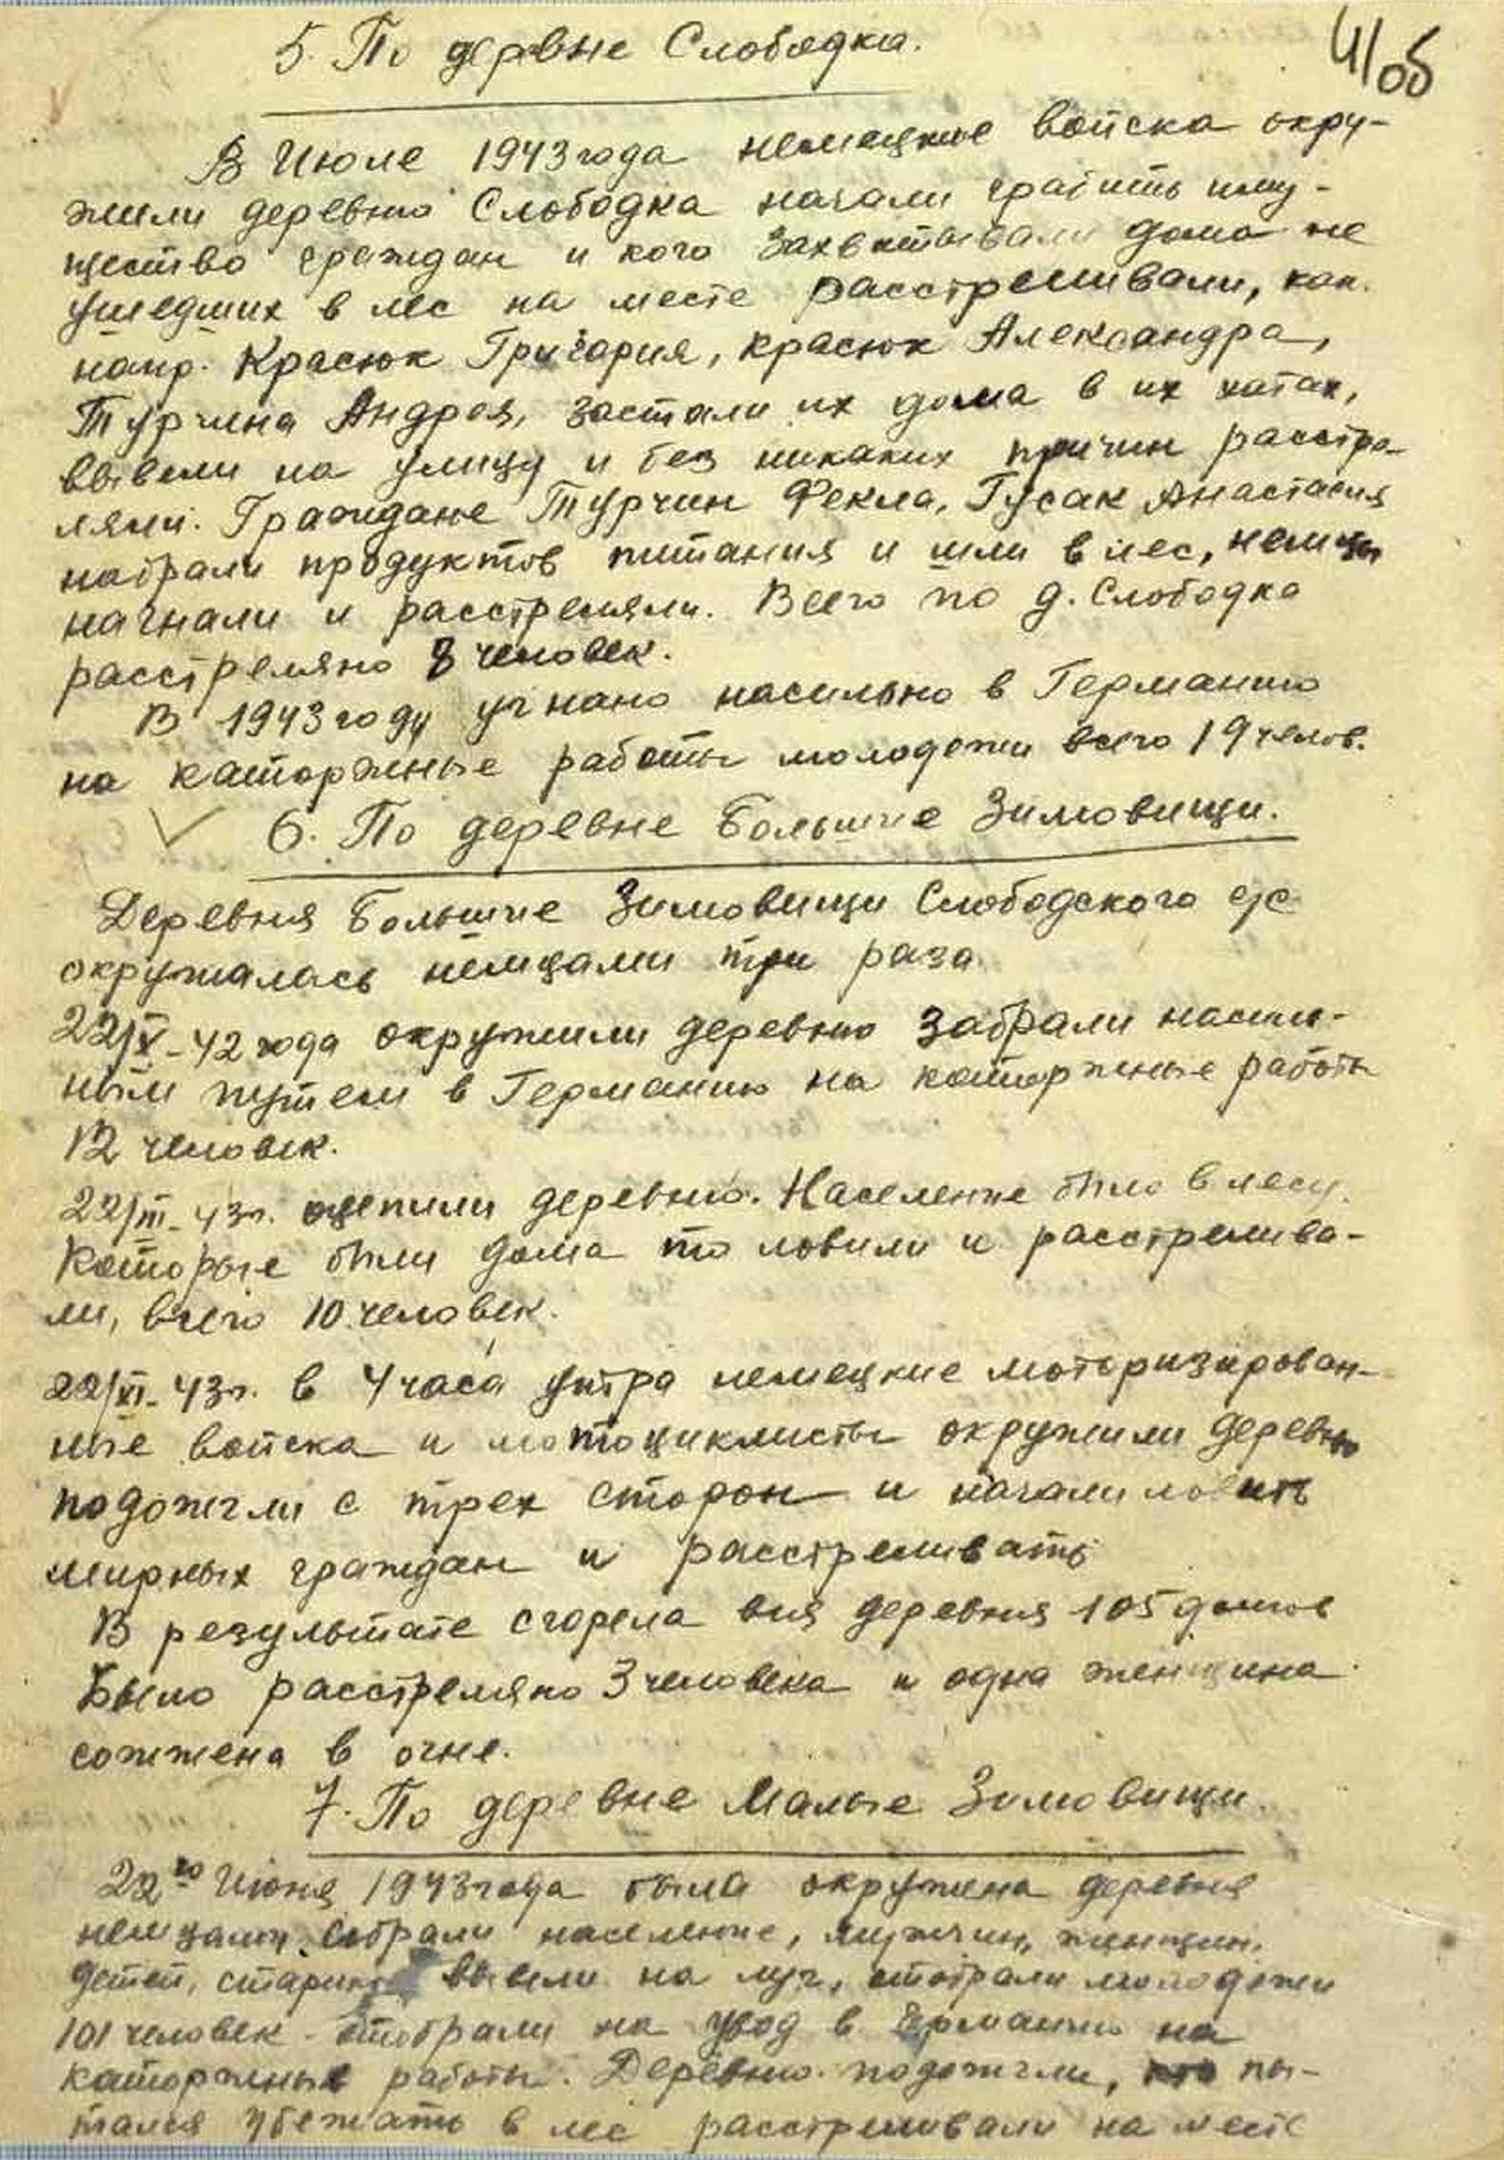 5. По деревне Слободка.
41/об
В Июле 1943 года немецкие войска окру-
жили деревню Слободка начали грабить иму-
щество граждан и кого захватывали дома не
ушедших в лес на месте расстреливали, как.
напр. Красюк Григория, Красюк Александра,
Турчина Андрея, застали их дома в их хатах,
вывели на улицу и без никаких причин расстре-
ляли. Граждане Турчин Фекла, Гусак Анастасия
набрали продуктов питания и шли в лес, немцы
нагнали и расстреляли. Всего по д. Слободка
расстреляно 8 человек.
В 1943 году угнано насильно в Германию
на каторжные работы молодежи всего 19 челов.
6. По деревне Большие Зимовищи.
Деревня Большие Зимовищи Слободского с/с
окружалась немцами три раза.
22/X-42 года окружили деревню забрали насиль-
ным путем в Германию на каторжные работы
12 человек.
22/III-43г. оцепили деревню. Население было в лесу.
Которые были дома то ловили и расстрелива-
ли, всего 10 человек.
22/VI-43г. в 4 часа утра немецкие моторизирован-
ные войска и мотоциклисты окружили деревню
подожгли с трех сторон и начали ловить
мирных граждан и расстреливать
В результате сгорела вся деревня 105 домов
Было расстреляно 3 человека и одна женщина
сожжена в огне.
7. По деревне Малые Зимовищи
22го Июня 1943 года была окружена деревня
немцами. Собрали население, мужчин, женщин,
детей, стариков вывели на луг, отобрали молодежи
101 человек отобрали на увод в Германию на
каторжные работы. Деревню подожгли, кто пы-
тался убежать в лес расстреливали на месте